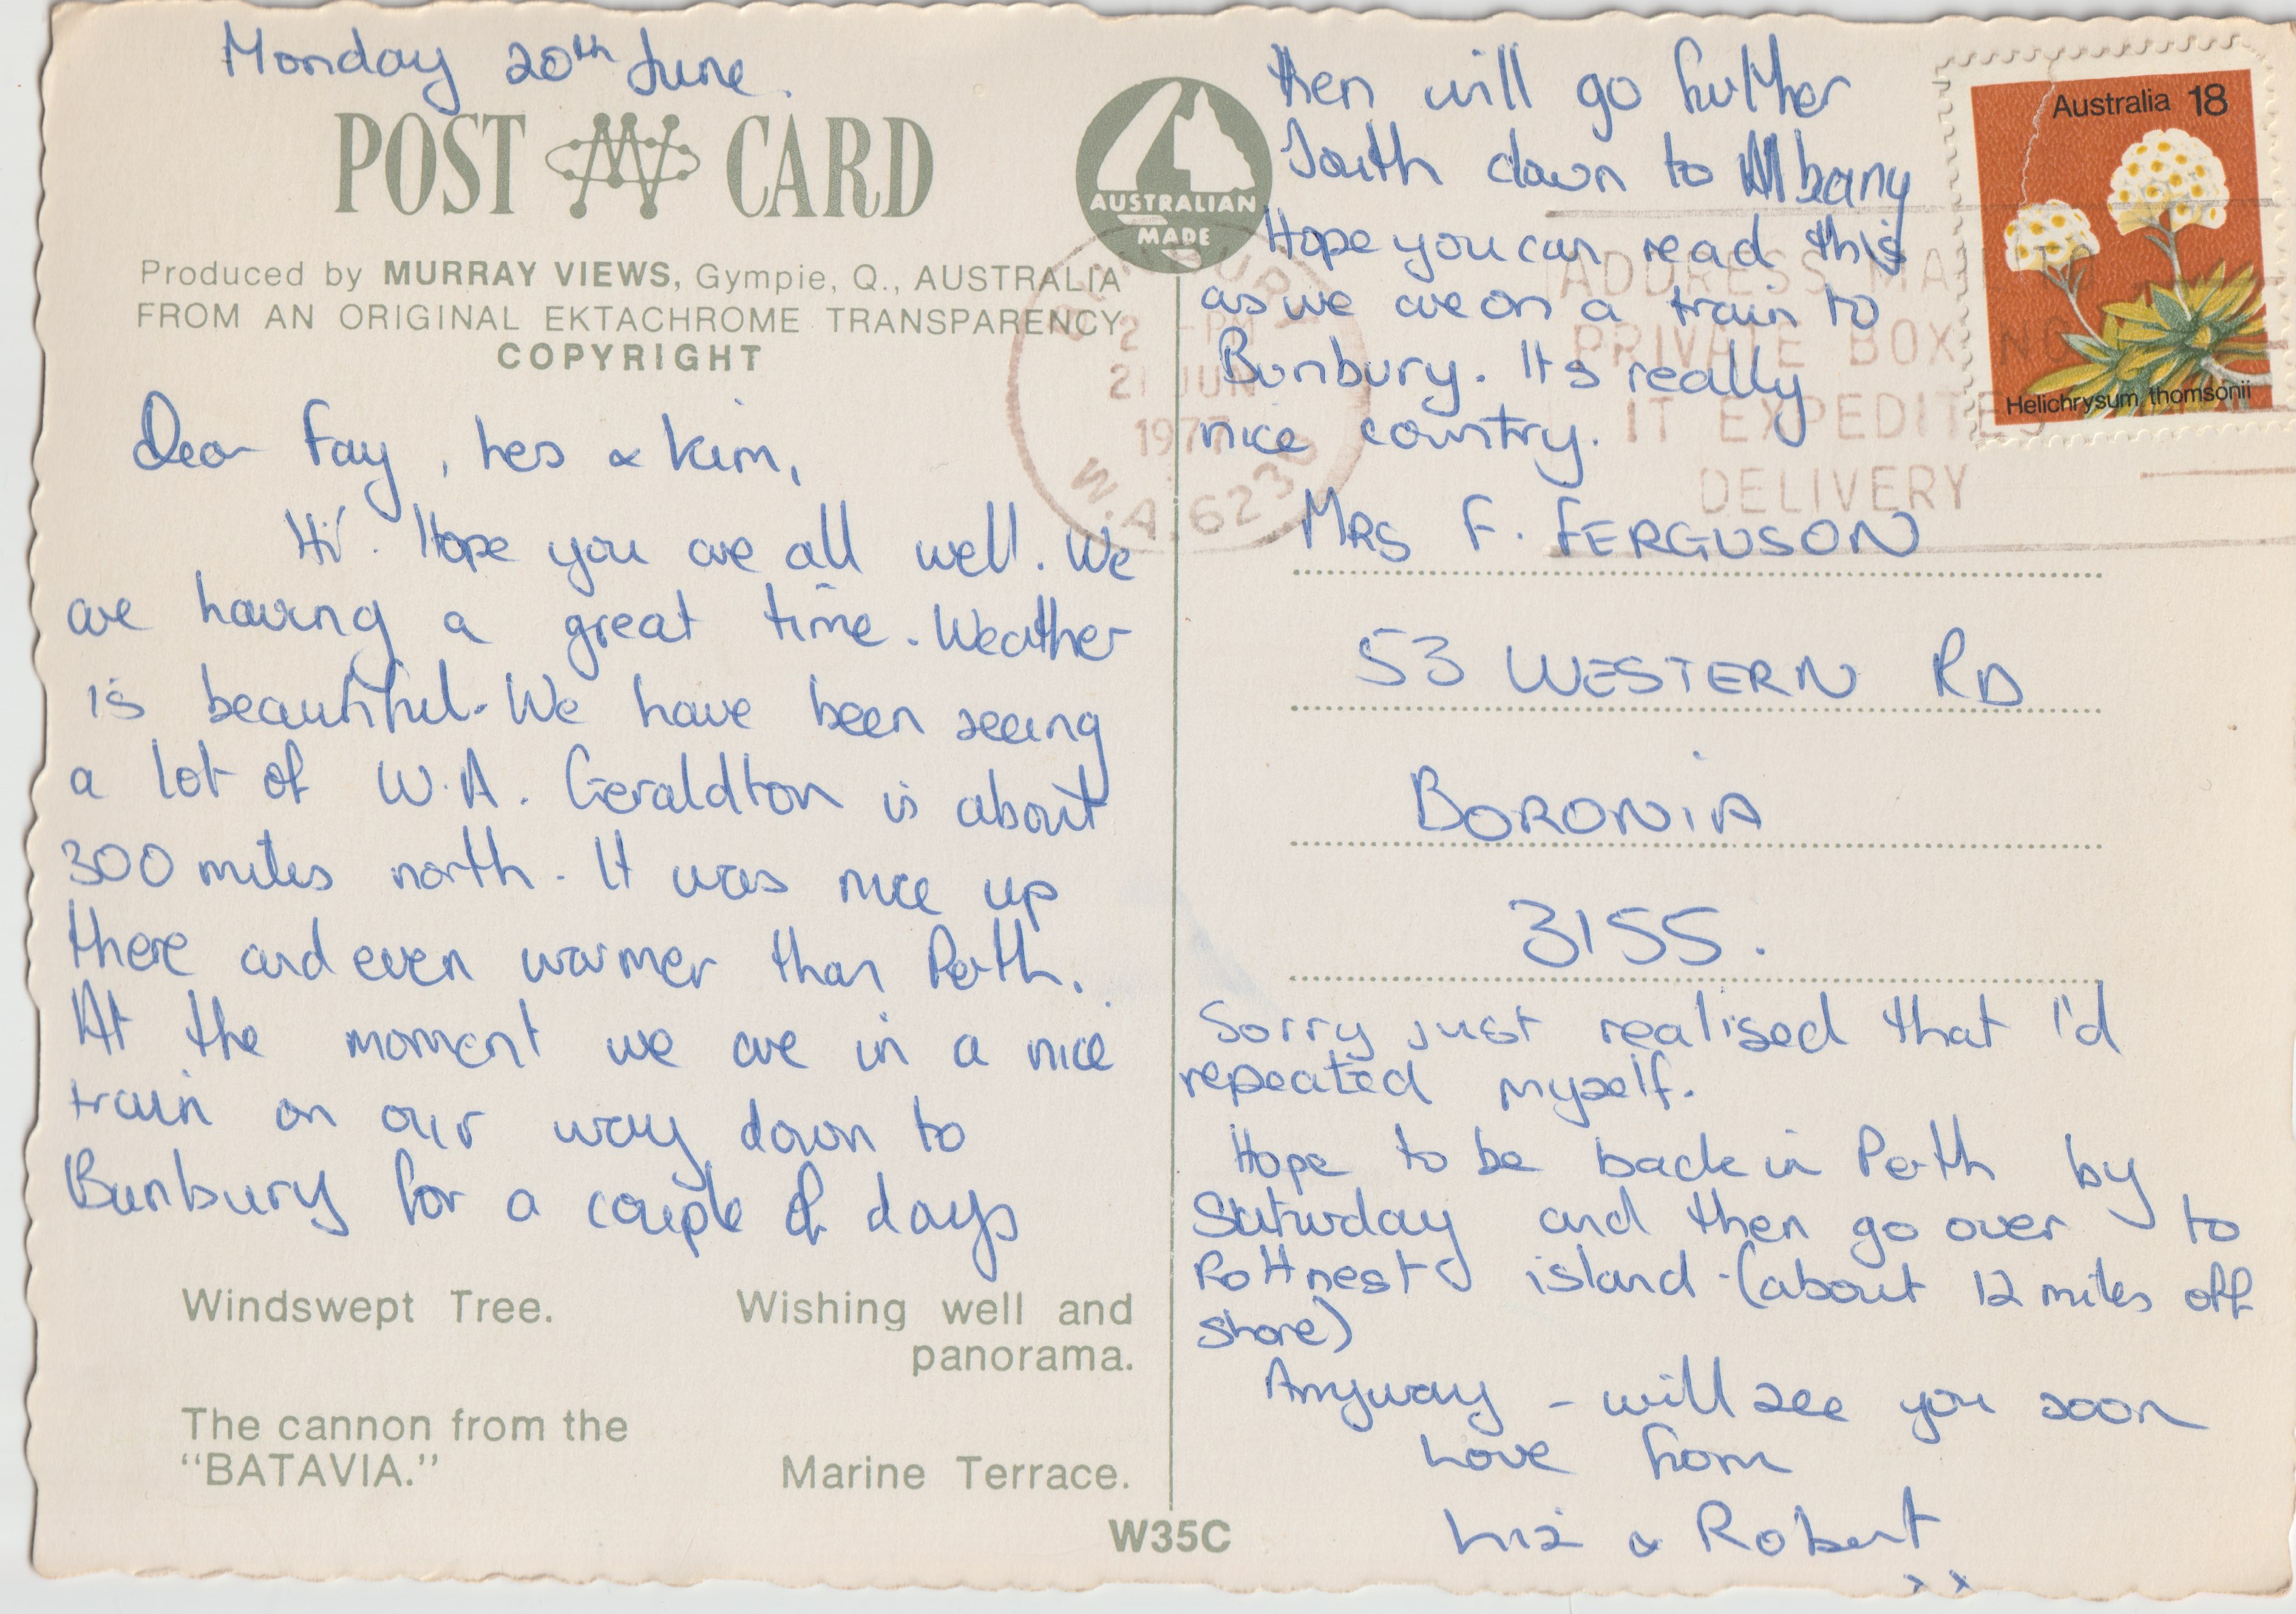 Monday 20th June.
POST CARD
AUSTRALIAN
MADE
Produced by MURRAY VIEWS, Gympie, Q., AUSTRALIA
FROM AN ORIGINAL EKTACHROME TRANSPARENCY
COPYRIGHT
Dear Fay, Les & Kim,
Hi. Hope you are all well. We
are having a great time. Weather
is beautiful. We have been seeing
a lot of W.A. Geraldton is about
300 miles north. It was nice up
there and even warmer than Perth.
At the moment we are in a nice
train on our way down to
Bunbury for a couple of days
Windswept Tree.
Wishing well and
panorama.
The cannon from the
"BATAVIA."
Marine Terrace.
W35C
then will go futher
South down to Albany
Hope you can read this
as we are on a train to
Bunbury. Its really
nice country.
Australia 18
Helichrysum thomsonii
BUNBURY
2 - PM
21 JUN
1977
W.A. 6230
ADDRESS MAIL TO
PRIVATE BOX NO
IT EXPEDITES
DELIVERY
MRS F. FERGUSON
53 WESTERN RD
BORONIA
3155.
Sorry just realised that I'd
repeated myself.
Hope to be back in Perth by
Saturday and then go over to
Rottnest island - (about 12 miles off
shore)
Anyway - will see you soon
Love from
Liz & Robert
x x